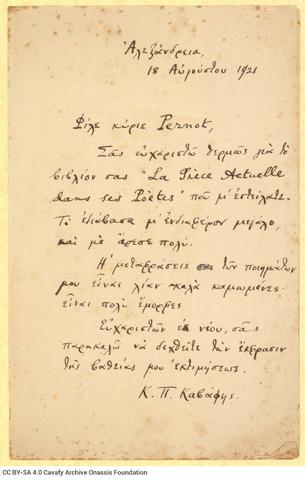 Ἀλεξάνδρεια,
18 Αὐγούστου 1921
Φίλε κύριε Pernot,
Σᾶς εὐχαριστῶ θερμῶς γιὰ τὸ
βιβλίον σας "La Grèce Actuelle
dans ses Poètes" ποῦ μ' ἐστείλατε.
Τὸ ἐδιάβασα μ' ἐνδιαφέρον μεγάλο,
καὶ μὲ ἄρεσε πολύ.
Ἡ μεταφράσεις τῶν ποιημάτων
μου εἶναι λίαν καλὰ καμωμένες·
εἶναι πολὺ ἔμορφες.
Εὐχαριστῶν ἐκ νέου, σᾶς
παρακαλῶ νὰ δεχθεῖτε τὴν ἔκφρασιν
τῆς βαθείας μου ἐκτιμήσεως.
Κ. Π. Καβάφης.
CC BY-SA 4.0 Cavafy Archive Onassis Foundation